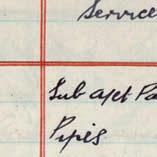 Service
Sub a/ct Pa
Pipes